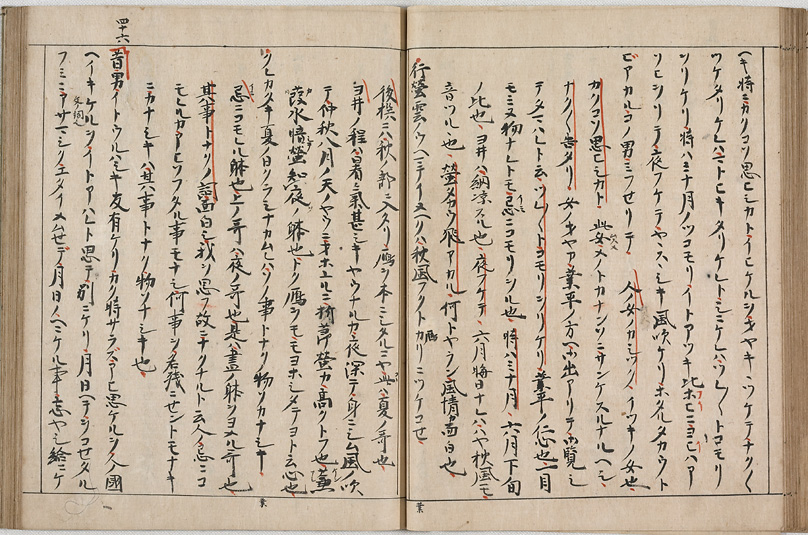 ヘキ時ニカクコソ思ヒシカトイヒケルヲオヤキヽツケテナク〱
ツケタリケレハマトヒキタリケレトシニケレハツレ〱トコモリ
ヲリケリ時ハミナ月ノツコモリイトアツキ比ホヒニヨヒハア
ソヒヲリテ夜フケテヤヽスヽシキ風吹ケリホタルタカウト
ヒアカルコノ男ミフセリテ 人ノムスメノカシツク イツキノ女也
カクコソ思ヒシカト 此女メノトカナンソニサンケスルナルヘシ
ナク〱告タリ 女ノオヤノ業平ノ方ヘ 出アリテ御覧シ
テタマハレト云 ツレ〱トコモリヲリケリ 業平ノ仁心也 一日
モミヌ物ナレトモ忌ニコモリシル也 時ハミナ月 六月下旬
ノ比也 ヨヰハ納涼スル也 夜フケテ 六月晦日ナレハハヤ秋風モ
音ツル也 螢タカウ飛アカル 何トヤラン風情面白也
行螢雲ノウヘマテイヌヘクハ秋風フクト鴈ニツケコセ
後撰ニハ秋ノ部ニ入タリ鴈ヲ本ニシタルニヤ此ハ夏ノ哥也
ヨヰノ程ハ暑氣甚シキヤウナルカ夜深テ身ニシム風ノ吹
テ仲秋八月ノ天ノヤウニオホユルニ折節螢カ高クトフ也 蒹
葭水暗螢知夜ノ躰也トク鴈ヲモモヨホシタテヨト云心也
クレカタキ夏ノ日クラシナカムレハソノ事トナク物ソカナシキ
忌ニコモレル躰也上ノ哥ハ夜ノ哥也是ハ晝ノ躰ヲヨメル哥也
其事トナクノ詞面白シ我ヲ思フ故ニナクナルト云人ノ忌ニコ
モレルカアヒソフタル事モナシ何事ヲ名残ニセントモナキ
ニカナシキハ其事トナク物ソナシキ也
四十六
昔男イトウルハシキ友有ケリカタ時サラスアヒ思ケルヲ人ノ國
ヘイキケルヲイトアハレト思テ別ニケリ月日ヘテヲコセタル
フミニアサマシクエタイメムセテ月日ノヘニケル事忘ヤシ給ニケ